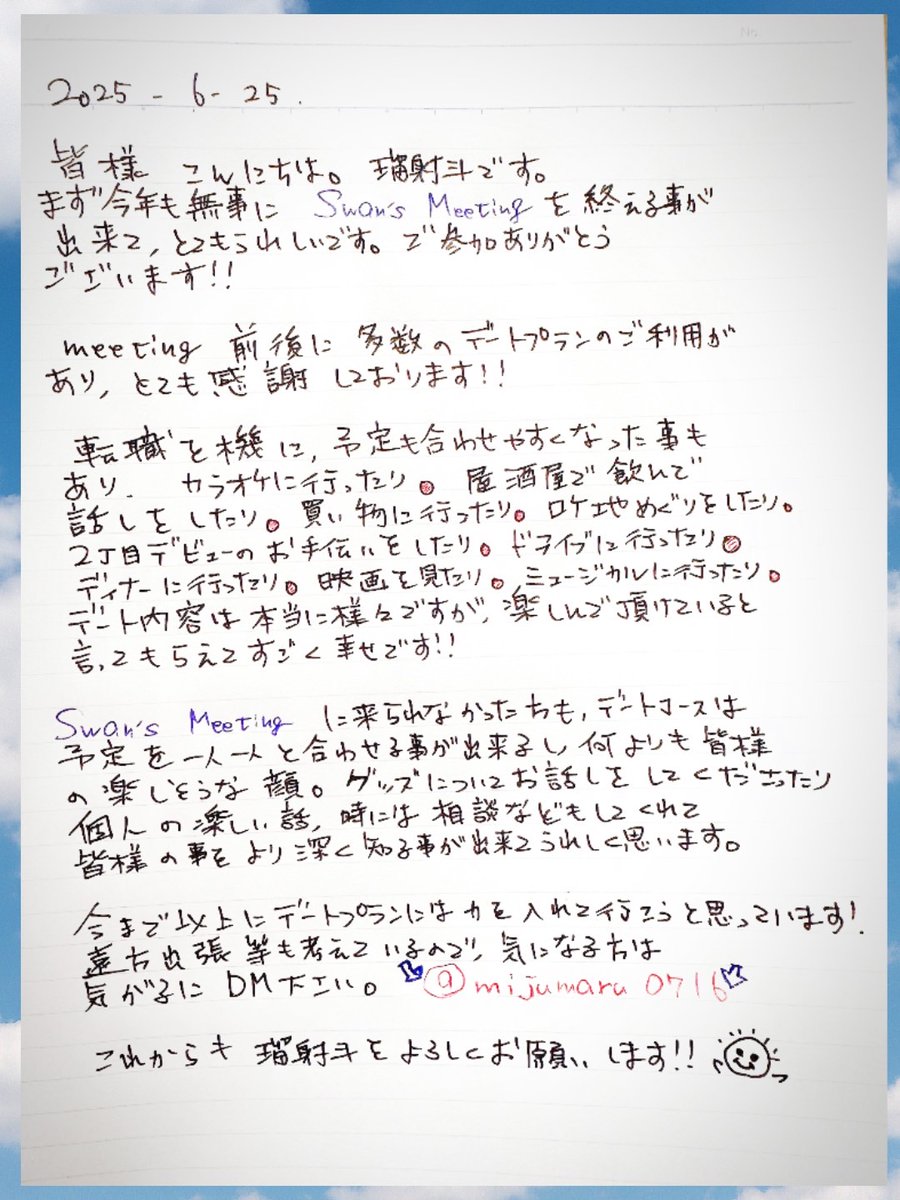 No.
2025-6-25.
皆様 こんにちは。瑠射斗です。
まず今年も無事に Swan's Meeting を終える事が
出来て、とてもうれしいです。ご参加ありがとう
ございます!!
meeting 前後に多数のデートプランのご利用が
あり、とても感謝しております!!
転職を機に、予定も合わせやすくなった事も
あり、カラオケに行ったり。居酒屋で飲んで
話しをしたり。買い物に行ったり。ロケ地めぐりをしたり。
2丁目デビューのお手伝いをしたり。ドライブに行ったり。
ディナーに行ったり。映画を見たり。ミュージカルに行ったり。
デート内容は本当に様々ですが、楽しんで頂けていると
言ってもらえてすごく幸せです!!
Swan's Meeting に来られなかったちも、デートコースは
予定を一人一人と合わせる事が出来るし、何よりも皆様
の楽しそうな顔。グッズについてお話しをしてくださったり
個人の楽しい話、時には相談などもしてくれて
皆様の事をより深く知る事が出来てうれしく思います。
今まで以上にデートプランには力を入れて行こうと思っています!
遠方出張等も考えているので、気になる方は
気がるにDM下さい。@mijumaru0716
これからも瑠射斗をよろしくお願いします!!